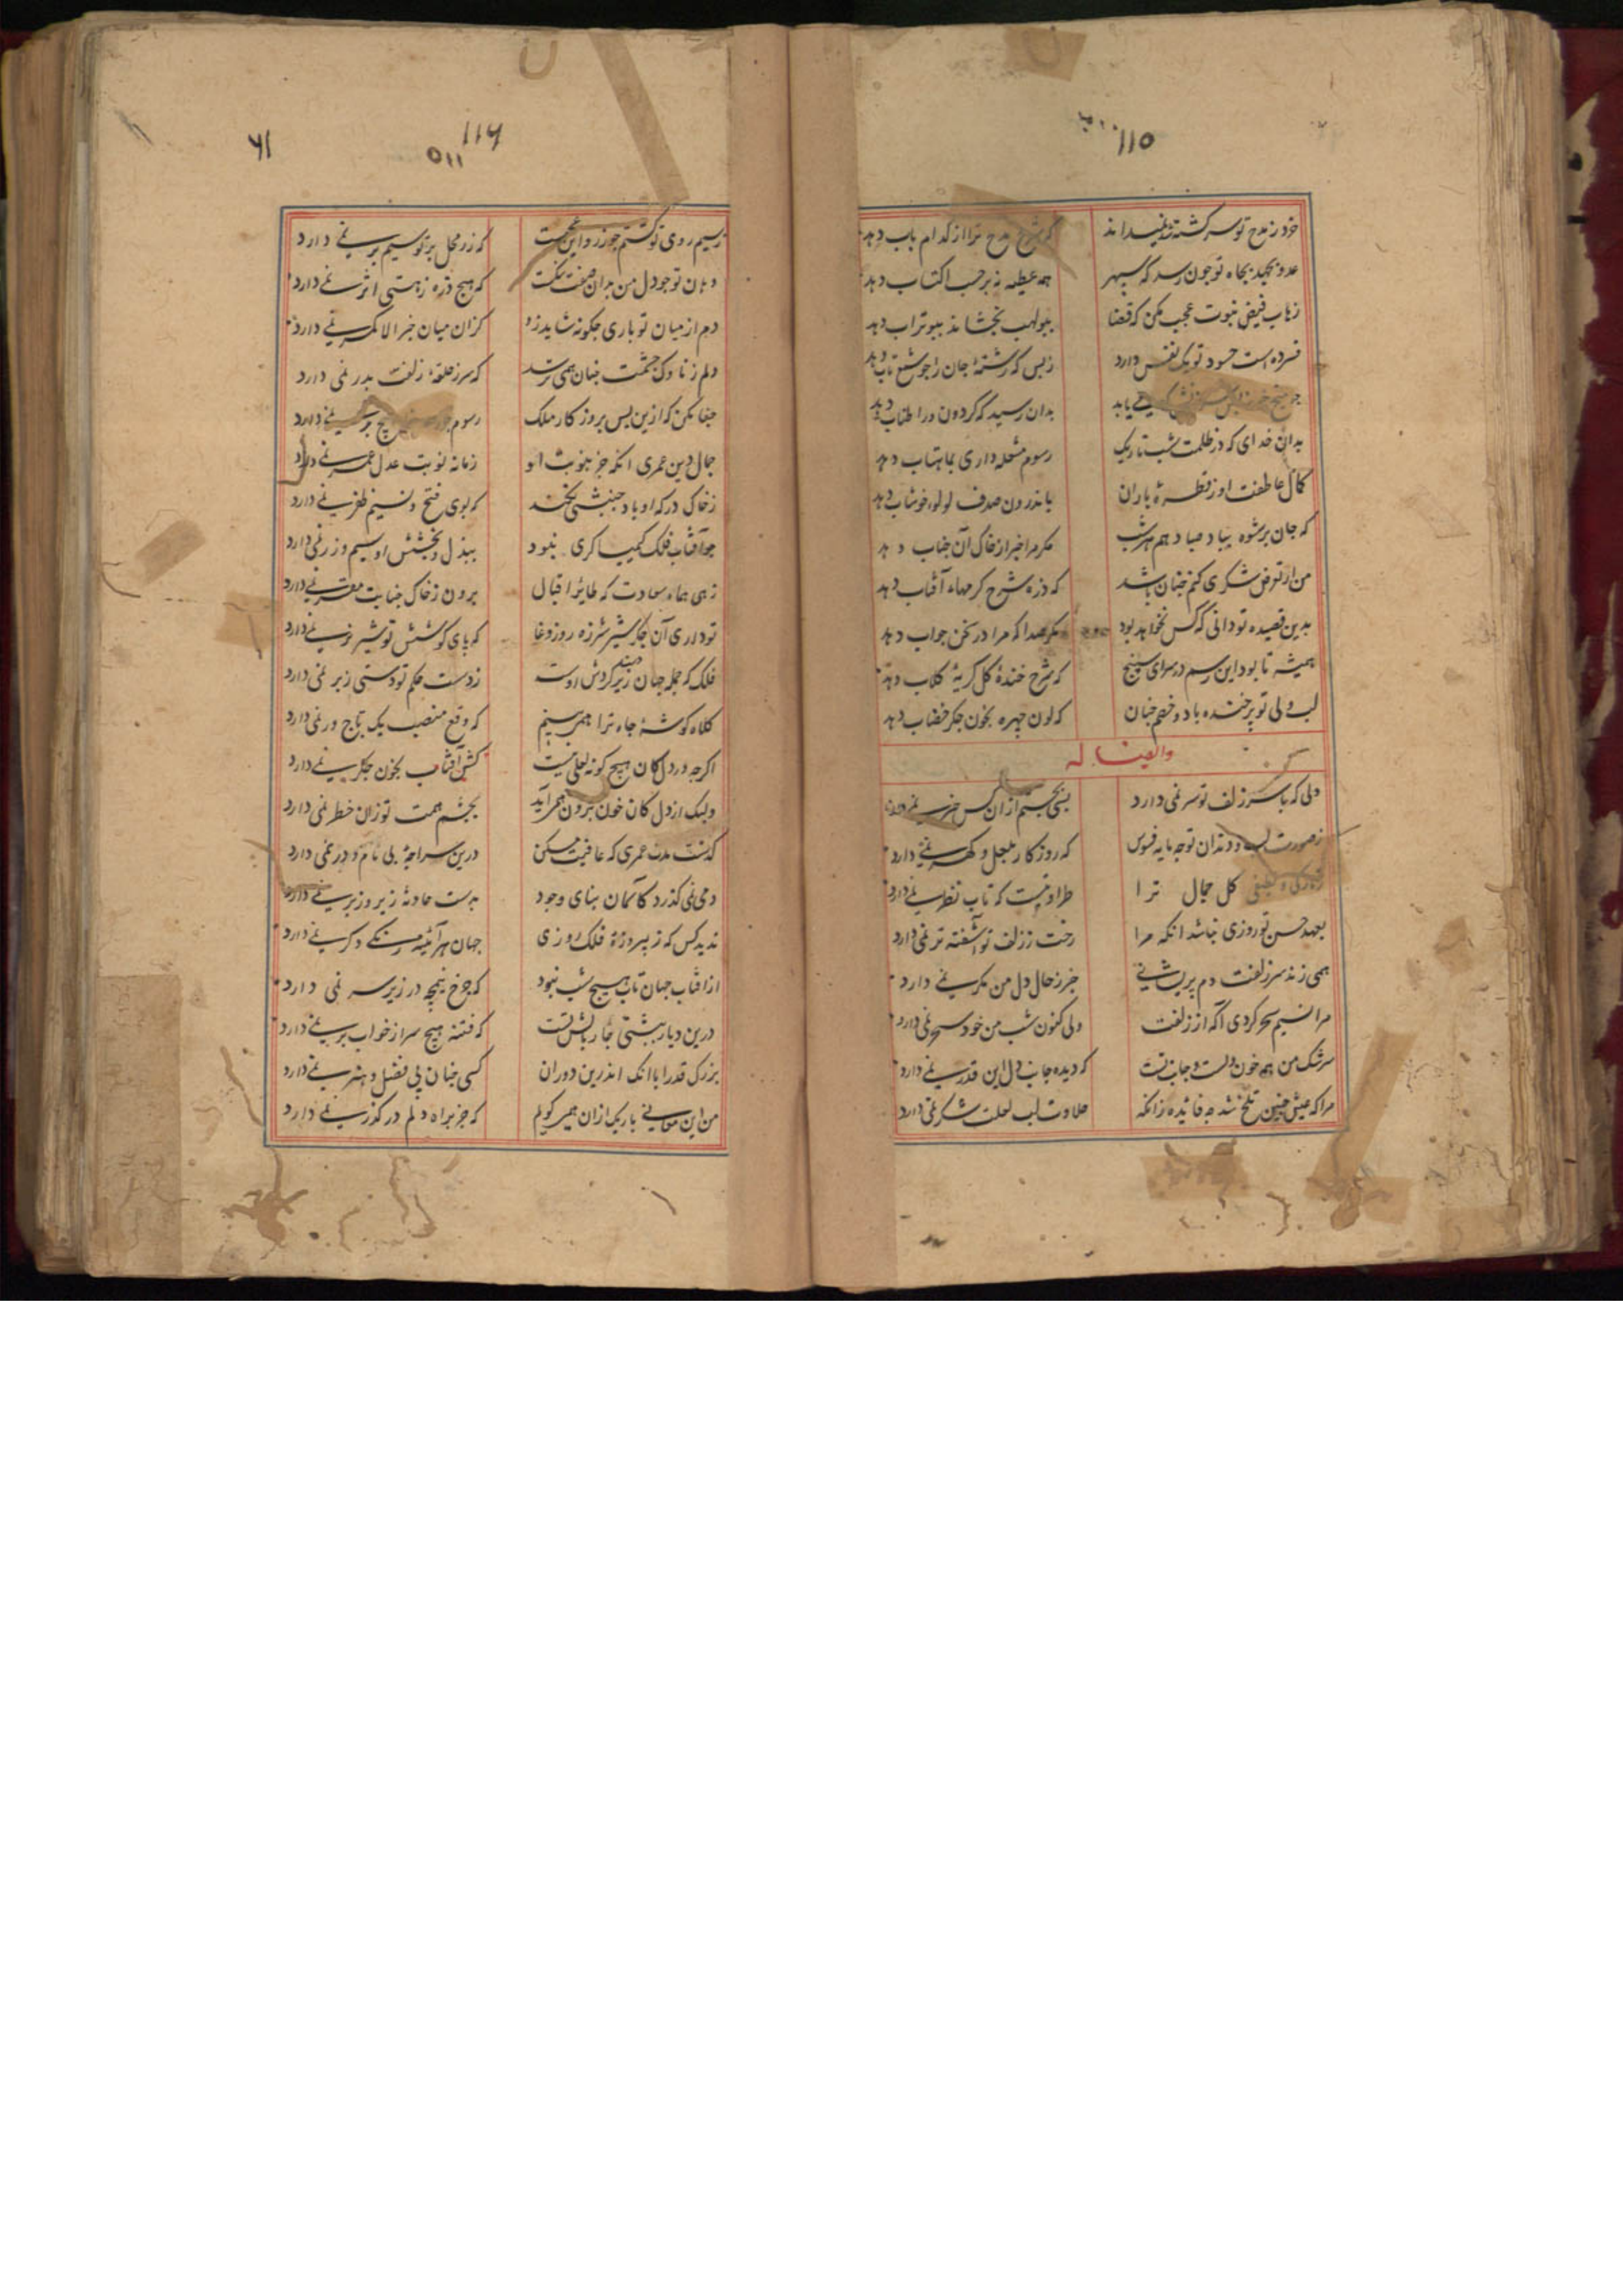 ۱۱۵
خرد ز مدح تو سرگشته شد نمیداند که شرح مدح ترا از کدام باب دهد
عدو بجهد بجاه تو چون رسد که سپهر همه عطیه نه برحسب اکتساب دهد
فیض نبوت عجب مکن که قضا ببولهب نخشاند ببوتراب دهد
فسرده است حسود تو یک نفس دارد زبس که رشته جان را چو شمع تاب دهد
بدان رسید که گردون ورا طناب دهد
بدان خدای که در ظلمت شب تاریک رسوم مشعله داری بماهتاب دهد
کمال عاطفت او ز قطره باران باندرون صدف لولو خوشاب دهد
که جان برشوه بباد صبا دهم هر شب مگر مرا خبر از خاک آن جناب دهد
من از تو فضل شکری کنم چنان باشد که ذره شرح کرمهاء آفتاب دهد
بدین قصیده تو دانی که کس نخواهد بود مگر صدا که مرا در سخن جواب دهد
همیشه تا بود این رسم در سرای سپنج که شرح خنده گل گریه گلاب دهد
لب ولی تو پرخنده باد و خصم چنان که لون چهره بخون جگر خضاب دهد
وایضا له
دلی که با سر زلف تو سر نمی دارد بسی بجستم ازان کس خبر نمی دارد
ز صورت لب و دندان تو چه مایه فسوس که روزگار بلعل و گهر نمی دارد
گل جمال ترا طراوتیست که تاب نظر نمی دارد
بعهد حسن تو روزی نباشد انکه مرا رخت ز زلف تو آشفته تر نمی دارد
همی زند سر زلفت دم پریشانی خبر ز حال دل من مگر نمی دارد
مرا نسیم سحر کردی آگه از زلفت ولی کنون شب من خود سحر نمی دارد
سرشک من همه خون دلست و جانب تست که دیده جانب دل این قدر نمی دارد
مرا که عیش چنین تلخ شد چه فایده زانکه حلاوت لب لعلت شکر نمی دارد
۱۱۶
۱۱۵
۶۱
ز سیم روی تو گشتم چو زر و این عجبست که زر محل بر تو سیم بر نمی دارد
دهان تو چو دل من بدان صفت تنگست که هیچ ذره ز هستی اثر نمی دارد
دم از میان تو باری چگونه شاید زد کزان میان خبر الا کمر نمی دارد
دلم ز ناوک چشمت چنان همی ترسد که سر ز حلقه زلفت بدر نمی دارد
جفا مکن که ازین پس بروزگار ملک رسوم جور نمی دارد
جمال دین عمری انکه جز بنوبت او زمانه نوبت عدل عمر نمی دارد
ز خاک درگه او باد جنبشی نکند که بوی فتح و نسیم ظفر نمی دارد
چو آفتاب فلک کیمیاگری نبود ببذل و بخشش او سیم و زر نمی دارد
زهی هماء سعادت که طایر اقبال برون ز خاک جنابت مقر نمی دارد
تو داری آن جگر شیر شرزه روز وغا که پای کوشش تو شیر نر نمی دارد
فلک که جمله جهان زیر گردش اوست ز دست حکم تو دستی زبر نمی دارد
کلاه گوشه جاه ترا همی بینم که وقع منصب یک تاجور نمی دارد
اگرچه در دل کان هیچ گونه لعلی نیست کش آفتاب بخون جگر نمی دارد
ولیک از دل کان خون برون همی آید بچشم همت تو زان خطر نمی دارد
گذشت مدت عمری که عافیت مسکن درین سراچه بی بام و در نمی دارد
دمی نمی گذرد کاسمان بنای وجود بدست حادثه زیر و زبر نمی دارد
ندید کس که ز پیروزه فلک روزی جهان هر آئینه رنگی دگر نمی دارد
از آفتاب جهان تاب هیچ شب نبود که چرخ پنجه در زیر سر نمی دارد
که فتنه هیچ سر از خواب بر نمی دارد
بزرگ قدرا با انک اندرین دوران کسی چنان پی فضل و هنر نمی دارد
من این معانی باریک ازان همی گویم که جز براه دلم در گذر نمی دارد